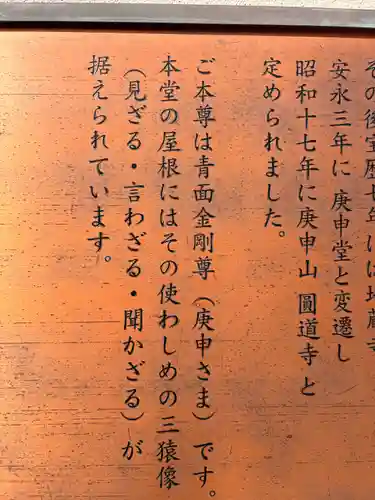 その後宝暦七年には地蔵寺
安永三年に 庚申堂と変遷し
昭和十七年に庚申山 圓道寺 と
定められました。
ご本尊は青面金剛尊（庚申さま）です。
本堂の屋根にはその使わしめの三猿像
（見ざる・言わざる・聞かざる）が
据えられています。